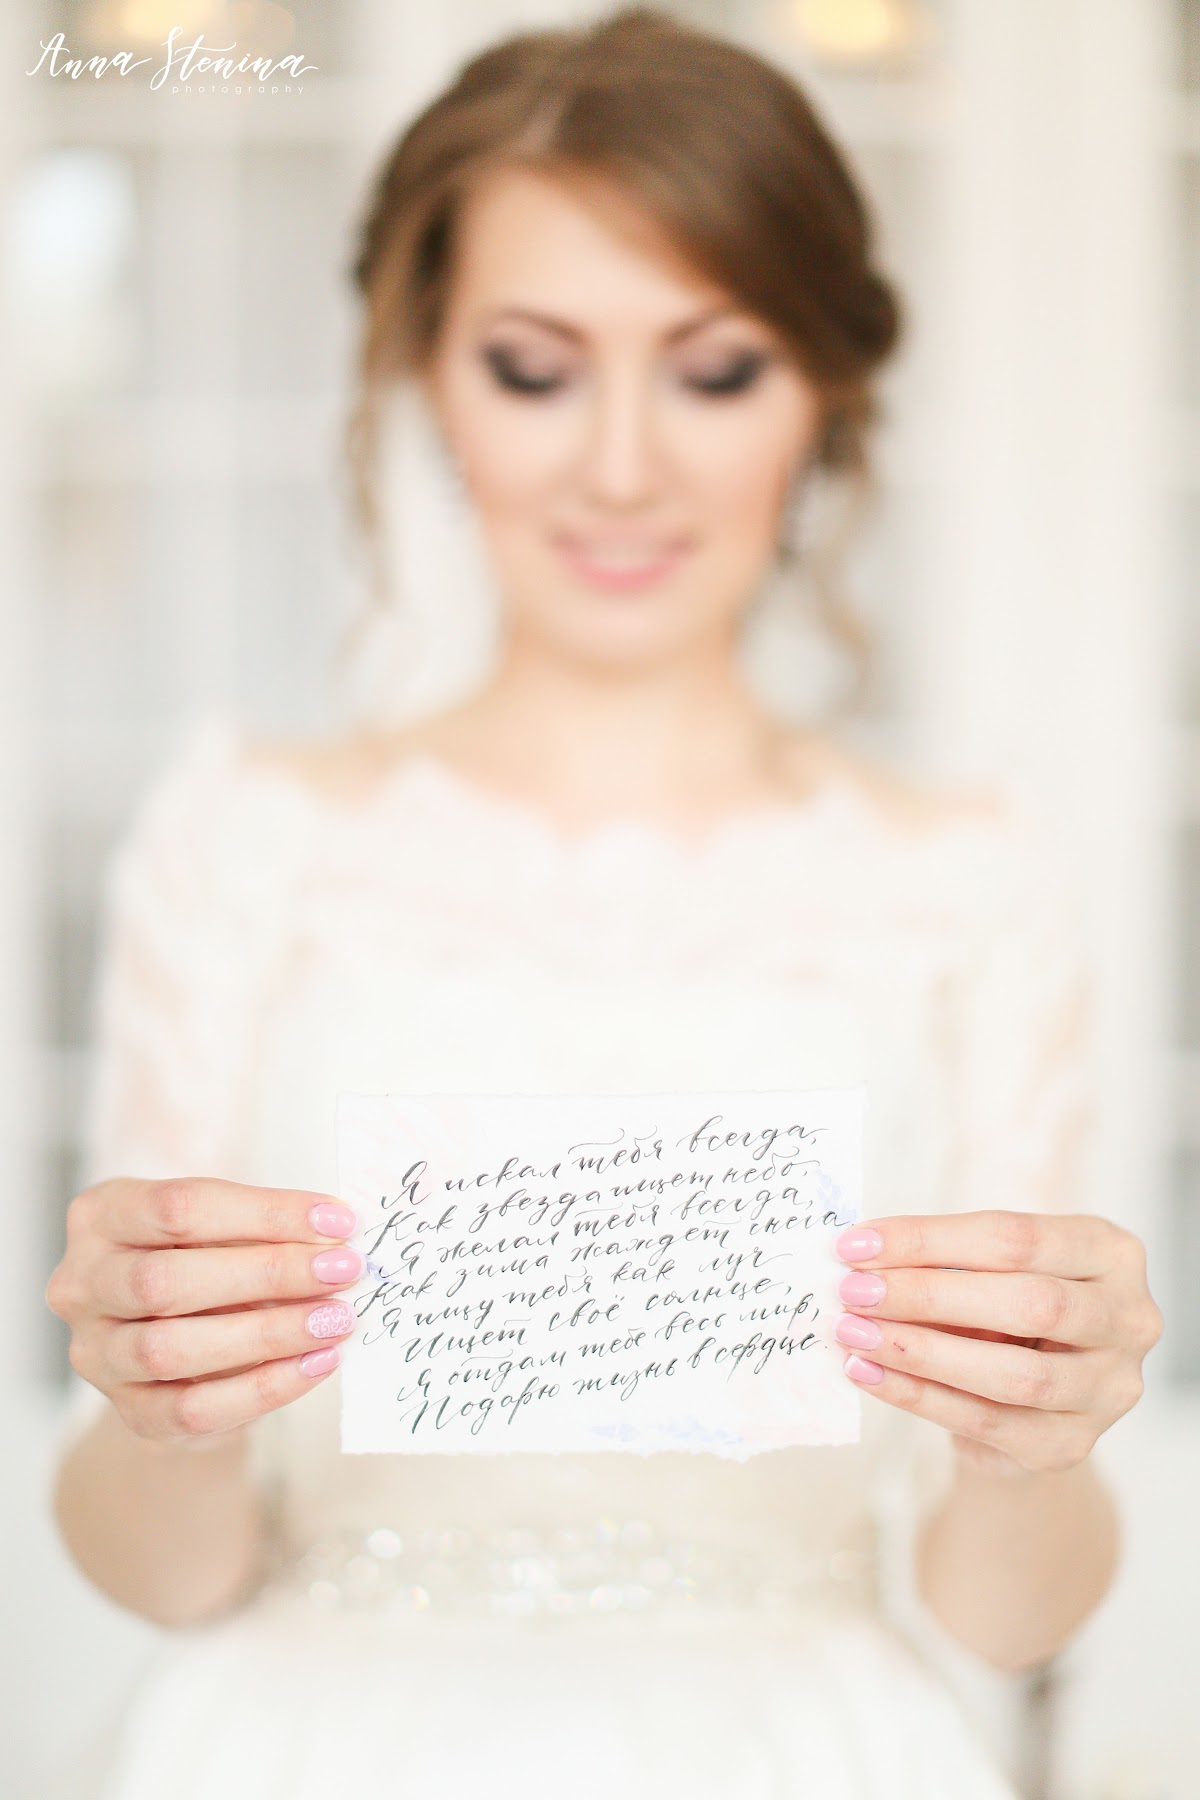 Anna Stenina
photography
Я искал тебя всегда,
Как звезда ищет небо,
Я желал тебя всегда,
Как зима жаждет снега.
Я ищу тебя как луч
Ищет своё солнце,
Я отдам тебе весь мир,
Подарю жизнь в сердце.